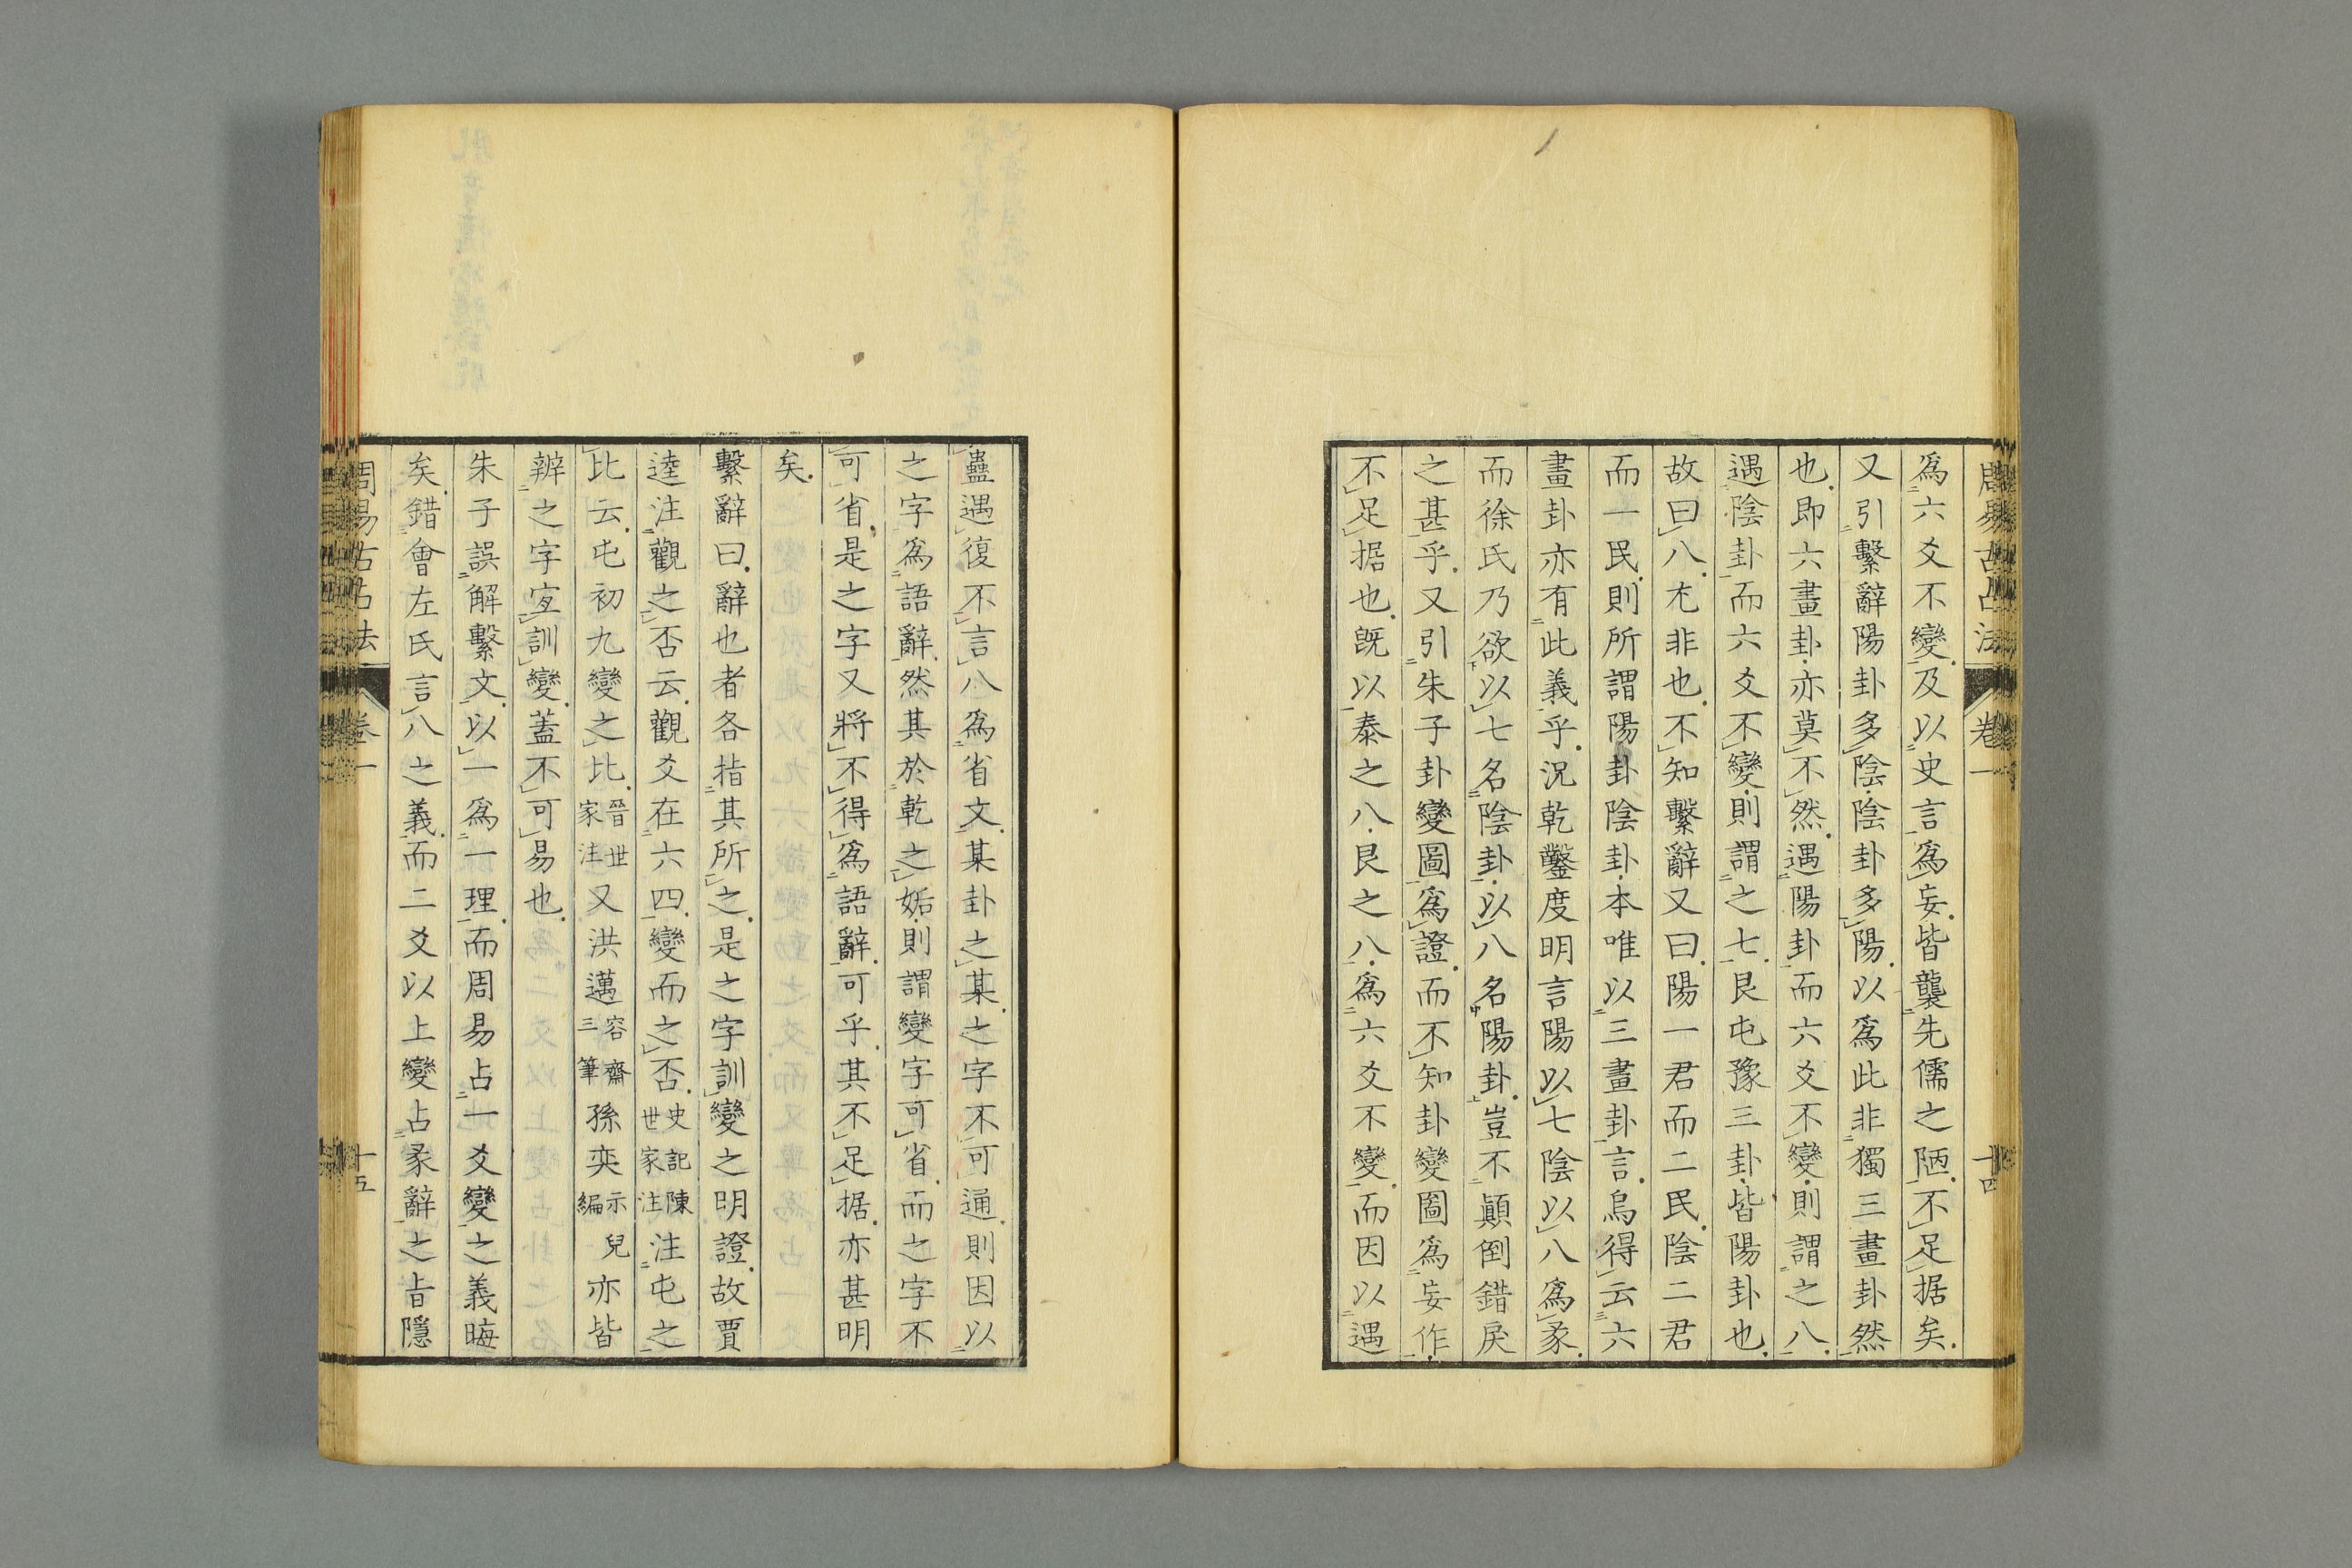 周易古占法 卷一 十四
爲六爻不變及以史言爲妄皆襲先儒之陋不足据矣
又引繫辭陽卦多陰陰卦多陽以爲此非獨三畫卦然
也即六畫卦亦莫不然遇陽卦而六爻不變則謂之八
遇陰卦而六爻不變則謂之七艮屯豫三卦皆陽卦也
故曰八尤非也不知繫辭又曰陽一君而二民陰二君
而一民則所謂陽卦陰卦本唯以三畫卦言烏得云六
畫卦亦有此義乎況乾鑿度明言陽以七陰以八爲彖
而徐氏乃欲以七名陰卦以八名陽卦豈不顚倒錯戾
之甚乎又引朱子卦變圖爲證而不知卦變圖爲妄作
不足据也旣以泰之八艮之八爲六爻不變而因以遇
蠱遇復不言八爲省文某卦之某之字不可通則因以
之字爲語辭然其於乾之姤則謂變字可省而之字不
可省是之字又將不得爲語辭可乎其不足据亦甚明
矣
繫辭曰辭也者各指其所之是之字訓變之明證故賈
逵注觀之否云觀爻在六四變而之否史記陳世家注注屯之
比云屯初九變之比晉世家注又洪邁容齋三筆孫奕示兒編亦皆
辨之字宐訓變蓋不可易也
朱子誤解繫文以一爲一理而周易占一爻變之義晦
矣錯會左氏言八之義而二爻以上變占彖辭之旨隱
周易古占法 卷一 十五